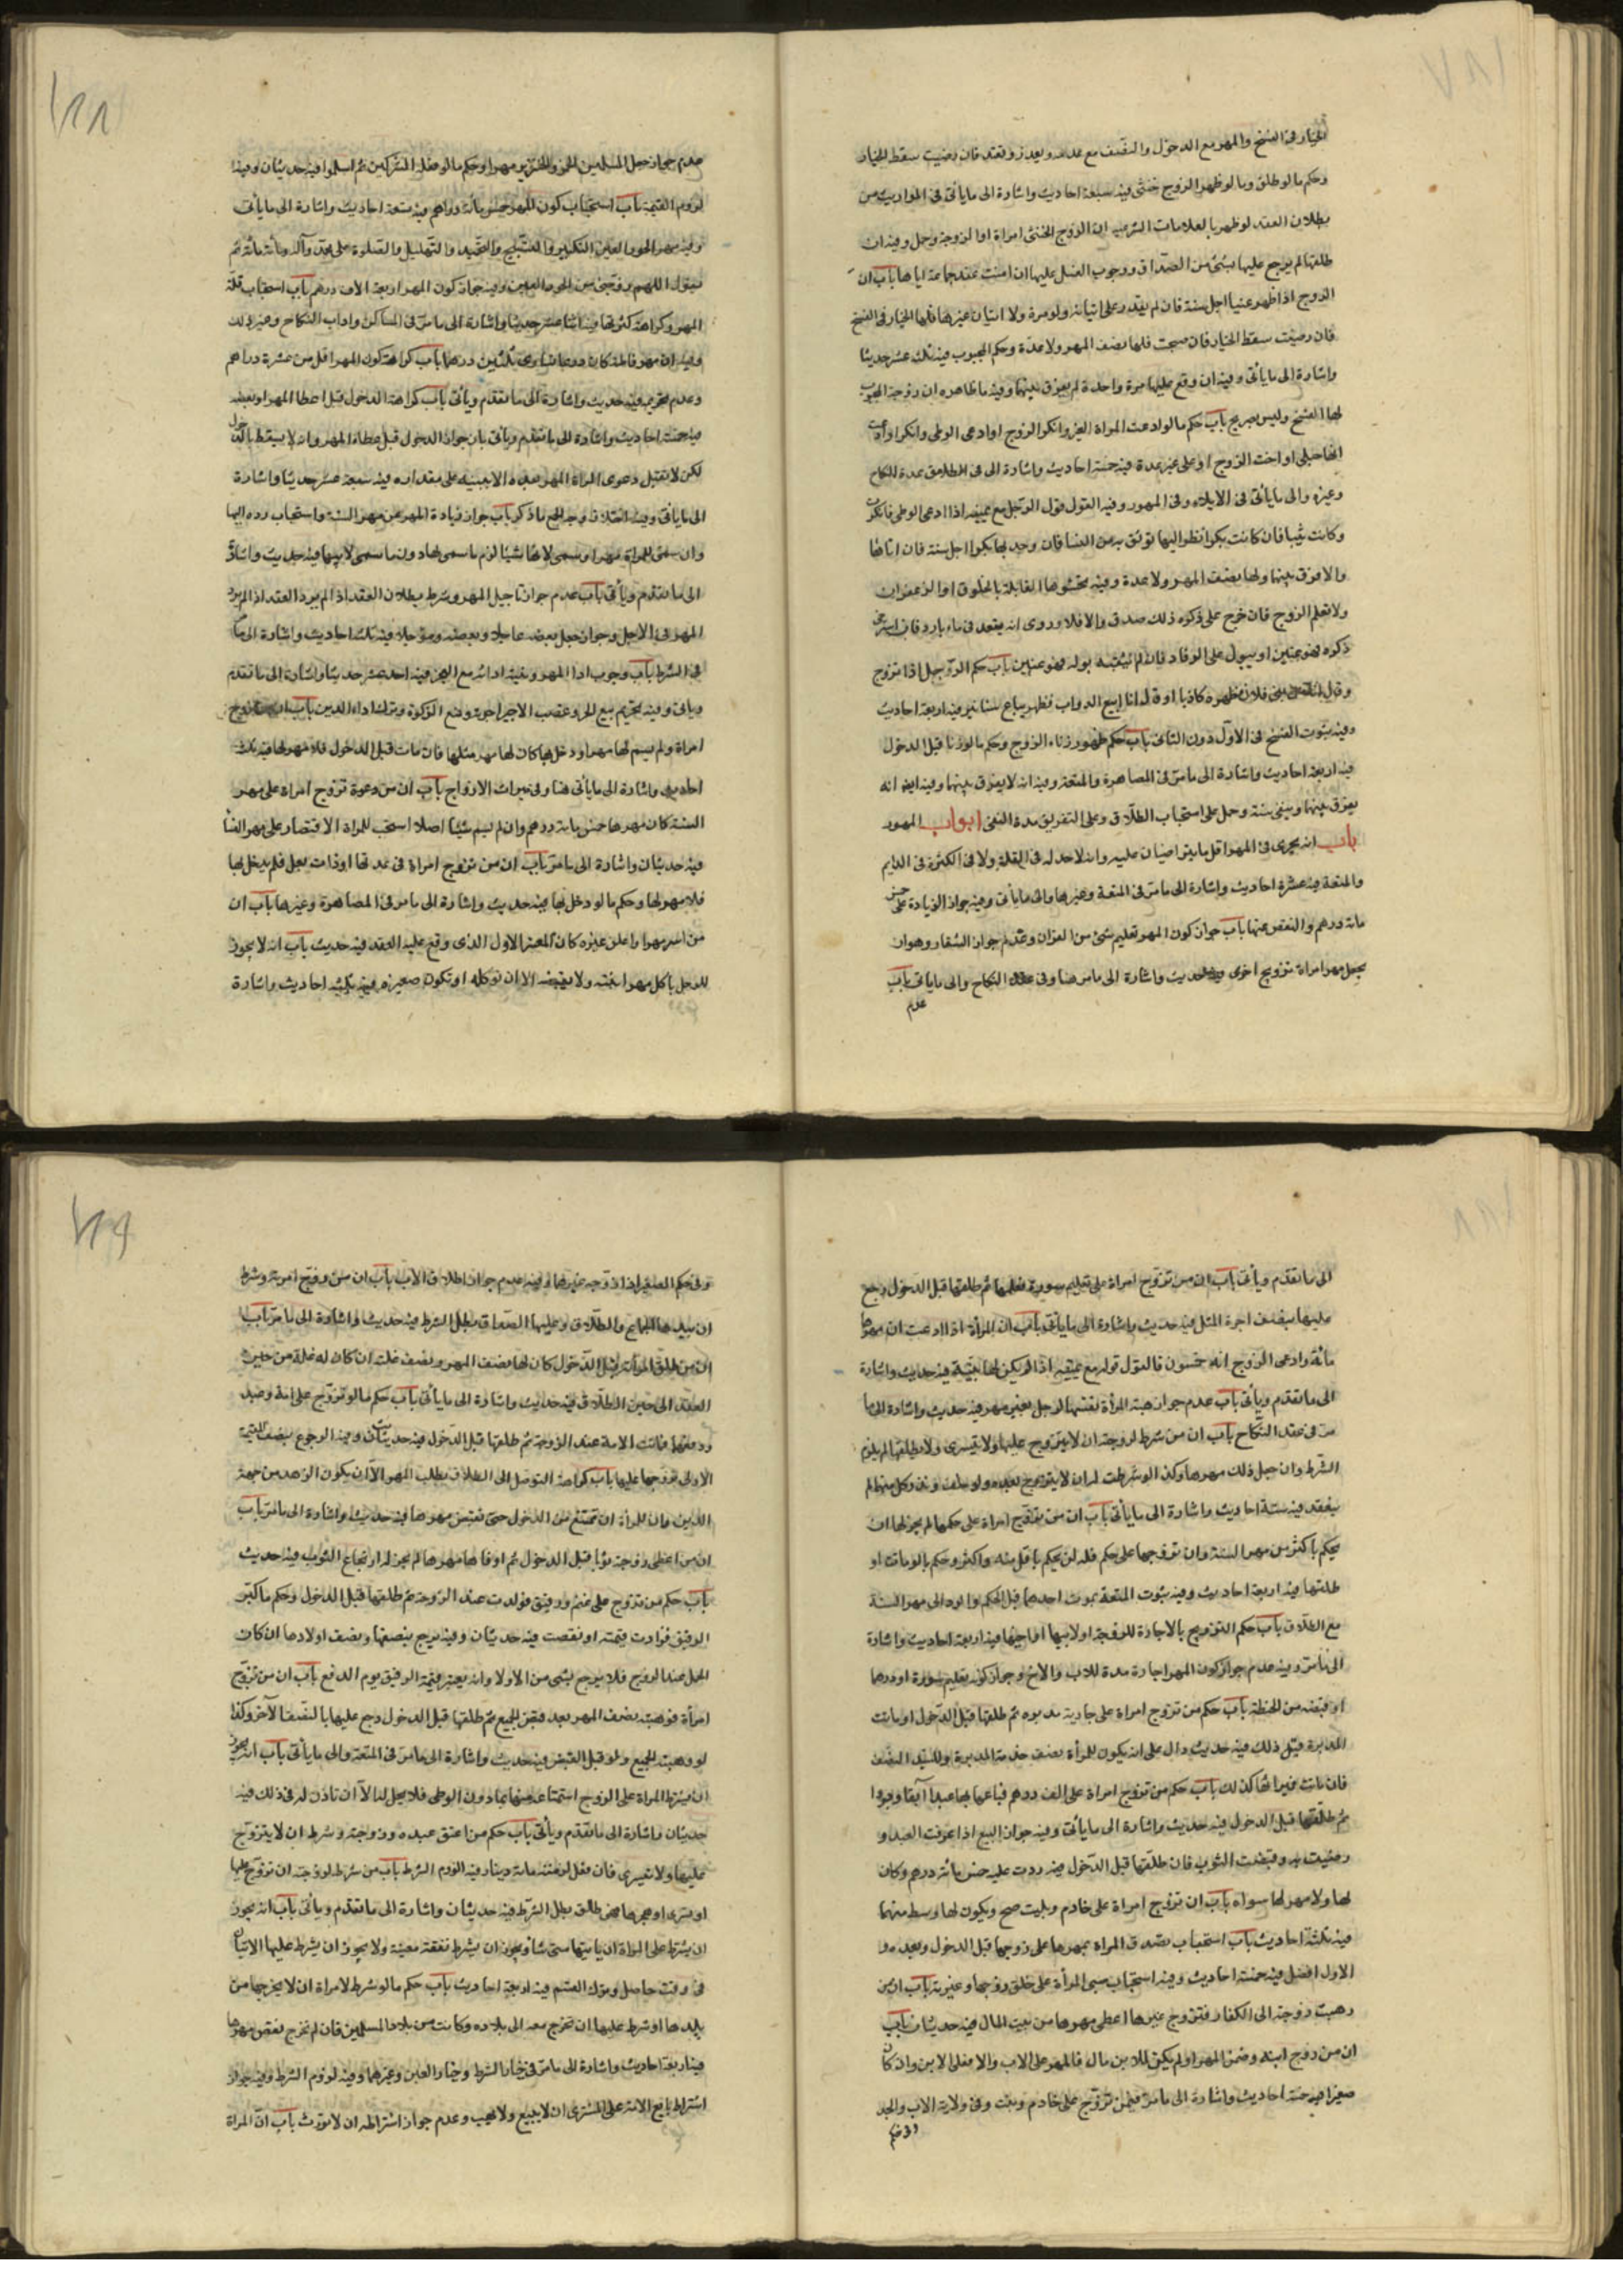 الخيار فى الفسخ والمهر مع الدخول والنصف مع عدمه وبعزر وتعتد فان رضيت سقط الخيار
وحكم ما لو طلق وما لو ظهر الزوج خنثى فيه سبعة احاديث واشارة الى ما يأتى فى المواريث من
بطلان العقد لو ظهر بالعلامات الشرعية ان الزوج الخنثى امراة او الزوجة رجل وفيه ان
طلقها لم يرجع عليها بشئ من الصداق ووجوب الغسل عليها ان امنت عند جماعه اياها باب ان
الزوج اذا ظهر عنينا اجل سنة فان لم يقدر على اتيانه ولو مرة ولا اتيان غيرها فلها الخيار فى الفسخ
فان رضيت سقط الخيار فان فسخت فلها نصف المهر ولا عدة وحكم المجبوب فيه ثلث عشر حديثا
واشارة الى ما يأتى وفيه ان وقع عليها مرة واحدة لم يفرق بينهما وفيه ما ظاهره ان زوجة المجبوب
لها الفسخ وليس بصريح باب حكم ما لو ادعت المراة العنن وانكر الزوج او ادعى الوطى وانكر او ادعت
انها حبلى او اخت الزوج او على غير عدة فيه خمسة احاديث واشارة الى
وغيره والى ما يأتى فى الايلاء وفى المهور وفيه القول قول الرجل مع يمينه اذا ادعى الوطى فانكرت
وكانت ثيبا فان كانت بكرا نظر اليها يوثق به من النسا فان وجد بها بكرا اجل سنة فان اتاها
والا فرق بينهما ولها نصف المهر ولا عدة وفيه تحشوها القابلة بالخلوق او الزعفران
ولا تعلم الزوج فان خرج على ذكره ذلك صدق والا فلا وروى انه يقعد فى ماء بارد فان استرخى
ذكره فهو عنين او يبول على الرماد فان لم يثقبه بوله فهو عنين باب حكم الرجل اذا تزوج
وقال انا من بنى فلان فظهر كاذبا او قال انا ابيع الدواب فظهر بياع سنانير فيه اربعة احاديث
وفيه ثبوت الفسخ فى الاول دون الثانى باب حكم ظهور زناء الزوج وحكم ما لو زنا قبل الدخول
فيه اربعة احاديث واشارة الى ما مر فى المصاهرة والمتعة وفيه انه لا يفرق بينهما وفيه ايضا انه
يفرق بينهما وينفى سنة وحمل على استحباب الطلاق وعلى التفريق مدة النفى ابواب المهور
باب انه يجزى فى المهر اقل ما يتراضيان عليه وانه لا حد له فى القلة ولا فى الكثرة فى الدايم
والمتعة فيه عشرة احاديث واشارة الى ما مر فى المتعة وغيرها والى ما يأتى وفيه جواز الزيادة على خمس
مائة درهم والنقص عنها باب جواز كون المهر تعليم شئ من القران وعدم جواز الشغار وهو ان
يجعل مهر امراة تزويج اخرى فيه حديث واشارة الى ما مر هنا وفى عقد النكاح والى ما ياتى باب
عدم
عدم جواز جعل المسلمين الخمر والخنزير مهرا وحكم ما لو فعله المشركين ثم اسلموا فيه حديثان وفيه
لزوم القيمة باب استحباب كون المهر خمس مائة دراهم فيه تسعة احاديث واشارة الى ما يأتى
وفيه مهر الحور العين التكبير والتسبيح والتحميد والتهليل والصلوة على محمد وآله مائة مائة ثم
يقول اللهم زوجنى من الحور العين وفيه جواز كون المهر اربعة الاف درهم باب استحباب قلة
المهر وكراهة كثرتها فيه اثنا عشر حديثا واشارة الى ما مر فى المساكن واداب النكاح وغير ذلك
وفيه ان مهر فاطمة كان درعا تساوى ثلثين درهما باب كراهة كون المهر اقل من عشرة دراهم
وعدم تحريمه فيه حديث واشارة الى ما تقدم ويأتى باب كراهة الدخول قبل اعطا المهر او بعضه
فيه خمسة احاديث واشارة الى ما تقدم ويأتى باب جواز الدخول قبل اعطاء المهر وانه لا يسقط بالدخول
لكن لا تقبل دعوى المراة المهر بعده الا ببينة على مقداره فيه سبعة عشر حديثا واشارة
الى ما ياتى وفيه اختلاف وجه الجمع ما ذكر باب جواز زيادة المهر عن مهر السنة واستحباب رده اليها
وان سمى للمراة مهرا وسمى لابيها شيئا لزم ما سمى لها دون ما سمى لابيها فيه حديث واشارة
الى ما تقدم ويأتى باب عدم جواز تاجيل المهر وشرط بطلان العقد اذا لم يؤد المهر
المهر فى الاجل وجواز جعل بعضه عاجلا وبعضه مؤجلا فيه ثلث احاديث واشارة الى ما مر
فى الشرط باب وجوب ادا المهر ونية ادائه مع العجز فيه احد عشر حديثا واشارة الى ما تقدم
ويأتى وفيه تحريم بيع الحر وغصب الاجير اجره ومنع الزكوة وترك اداء الدين باب ان من تزوج
امراة ولم يسم لها مهرا ودخل بها كان لها مهر مثلها فان مات قبل الدخول فلا مهر لها فيه ثلث
احاديث واشارة الى ما يأتى هنا وفى ميراث الازواج باب ان من دعوة تزوج امراة على مهر
السنة كان مهرها خمس مائة درهم وان لم يسم شيئا اصلا استحب للمراة الاقتصار على مهر السنة
فيه حديثان واشارة الى ما مر باب ان من تزوج امراة فى عدتها او ذات بعل فلم يدخل بها
فلا مهر لها وحكم ما لو دخل بها فيه حديث واشارة الى ما مر فى المصاهرة وغيرها باب ان
من اسر مهرا واعلن غيره كان المعتبر الاول الذى وقع عليه العقد فيه حديث باب انه لا يجوز
للرجل ياكل مهر ابنته ولا يقبضه الا ان توكله او تكون صغيرة فيه ثلثة احاديث واشارة
الى ما تقدم ويأتى باب ان من تزوج امراة على تعليم سورة فعلمها ثم طلقها قبل الدخول رجع
عليها بنصف اجرة المثل فيه حديث واشارة الى ما يأتى باب ان المرأة اذا ادعت ان مهرها
مائة وادعى الزوج انه خمسون فالقول قوله مع يمينه اذا لم يكن لها بينة فيه حديث واشارة
الى ما تقدم ويأتى باب عدم جواز هبة المرأة نفسها لرجل بغير مهر فيه حديث واشارة الى ما
مر فى عقد النكاح باب ان من شرط لزوجته ان لا يتزوج عليها ولا يتسرى ولا يطلقها لم يلزم
الشرط وان جعل ذلك مهرها وكذا لو شرطت له ان لا يتزوج بعده ولو حلف ونذر كل منهما لم
ينعقد فيه ستة احاديث واشارة الى ما يأتى باب ان من تزوج امراة على حكمها لم يجز لها ان
تحكم باكثر من مهر السنة وان تزوجها على حكمه فله ان يحكم باقل منه واكثر وحكم ما لو مات او
طلقها فيه اربعة احاديث وفيه ثبوت المتعة بموت احدهما قبل الحكم والرد الى مهر السنة
مع الطلاق باب حكم التزويج بالاجارة للزوجة او لابيها او اخيها فيه اربعة احاديث واشارة
الى ما مر وفيه عدم جواز كون المهر اجارة مدة للاب والاخ وجواز كونه تعليم سورة او درهما
او قبضه من الحنطة باب حكم من تزوج امراة على جارية مدبرة ثم طلقها قبل الدخول او ماتت
المدبرة قبل ذلك فيه حديث دال على انه يكون للمرأة نصف خدمة المدبرة وللسيد النصف
فان مات فميراثها كذلك باب حكم من تزوج امراة على الف درهم فباعها بها عبدا آبقا وبردا
ثم طلقها قبل الدخول فيه حديث واشارة الى ما يأتى وفيه جواز البيع اذا عرفت العبد و
رضيت به وقبضت الثوب فان طلقها قبل الدخول فيه ردت عليه خمس مائة درهم وكان
لها ولا مهر لها سواه باب ان تزوج امراة على خادم وبيت صح ويكون لها وسط منهما
فيه ثلثة احاديث باب استحباب تصدق المراة بمهرها على زوجها قبل الدخول وبعده و
الاول افضل فيه خمسة احاديث وفيه استحباب صبر المرأة على خلق زوجها وغيرته باب ان من
ذهبت زوجته الى الكفار فتزوج غيرها اعطى مهرها من بيت المال فيه حديثان باب
ان من زوج ابنه وضمن المهر او لم يكن للابن مال فالمهر على الاب والا فعلى الابن وان كان
صغيرا فيه خمسة احاديث واشارة الى ما مر فيمن تزوج على خادم وبيت وفى ولاية الاب والجد
وفى حكم
وفى حكم الصغير اذا زوجه غيرهما وفيه عدم جواز اطلاق الاب باب ان من تزوج امرأة وشرط
ان بيدها الجماع والطلاق وعليها الصداق بطل الشرط فيه حديث واشارة الى ما مر باب
ان من طلق المرأة قبل الدخول كان لها نصف المهر ونصف غلته ان كان له غلة من حين
العقد الى حين الطلاق فيه حديث واشارة الى ما يأتى باب حكم ما لو تزوج على امة وعبد
ودفعها فماتت الامة عند الزوجة ثم طلقها قبل الدخول فيه حديثان وفيه الرجوع بنصف القيمة
الاولى تزوجها عليها باب كراهة التوصل الى الطلاق بطلب المهر الا ان يكون الزهد من جهة
الدين وان للمرأة ان تمتنع من الدخول حتى تقبض مهرها فيه حديث واشارة الى ما مر باب
ان من اعطى زوجته ثوبا قبل الدخول ثم اوفاها مهرها لم يجز له ارتجاع الثوب فيه حديث
باب حكم من تزوج على غنم ورقيق فولدت عند الزوجة ثم طلقها قبل الدخول وحكم ما كبر
الرقيق فزادت قيمته او نقصت فيه حديثان وفيه يرجع بنصفها ونصف اولادها ان كان
الحمل عند الزوج فلا يرجع بشى من الاولاد وانه يعتبر قيمة الرقيق يوم الدفع باب ان من تزوج
امرأة فوهبته نصف المهر بعد قبض الجميع ثم طلقها قبل الدخول رجع عليها بالنصف الآخر وكذا
لو وهبته الجميع ولو قبل القبض فيه حديث واشارة الى ما مر فى المتعة والى ما يأتى باب انه يجوز
ان تشترط المراة على الزوج استمتاعه منها بما دون الوطى فلا يحل له الا ان تاذن له فى ذلك فيه
حديثان واشارة الى ما تقدم ويأتى باب حكم من اعتق عبده وزوجته وشرط ان لا يتزوج
عليها ولا تتسرى فان فعل لزمته مائة دينار فيه لزوم الشرط باب من شرط لزوجته ان تزوج عليها
او تسرى او هجرها فهى طالق بطل الشرط فيه حديثان واشارة الى ما تقدم ويأتى باب انه يجوز
ان يشترط على المراة ان ياتيها متى شأ ويجوز ان يشرط نفقة معينة ولا يجوز ان يشرط عليها الاتيان
فى وقت خاص وترك القسم فيه اربعة احاديث باب حكم ما لو شرط لامراة ان لا يخرجها من
بلدها او شرط عليها ان تخرج معه الى بلاده وكانت من بلاد المسلمين فان لم تخرج نقص مهرها
فيه اربعة احاديث واشارة الى ما مر فى خيار الشرط وخيار الغبن وغيرها وفيه لزوم الشرط وفيه جواز
اشتراط بايع الامة على المشترى ان لا يبيع ولا يهب وعدم جواز اشتراطه ان لا تورث باب ان المراة